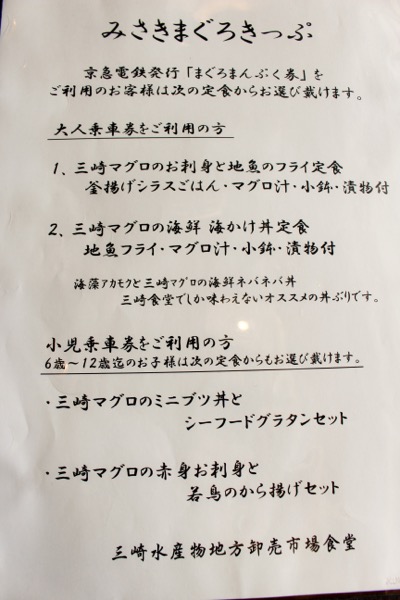 みさきまぐろきっぷ
京急電鉄発行「まぐろまんぷく券」を
ご利用のお客様は次の定食からお選び戴けます。
大人乗車券をご利用の方
1、三崎マグロのお刺身と地魚のフライ定食
釜揚げシラスごはん・マグロ汁・小鉢・漬物付
2、三崎マグロの海鮮 海かけ丼定食
地魚フライ・マグロ汁・小鉢・漬物付
海藻アカモクと三崎マグロの海鮮ネバネバ丼
三崎食堂でしか味わえないオススメの丼ぶりです。
小児乗車券をご利用の方
6歳〜12歳迄のお子様は次の定食からもお選び戴けます。
・三崎マグロのミニブツ丼と
シーフードグラタンセット
・三崎マグロの赤身お刺身と
若鳥のから揚げセット
三崎水産物地方卸売市場食堂